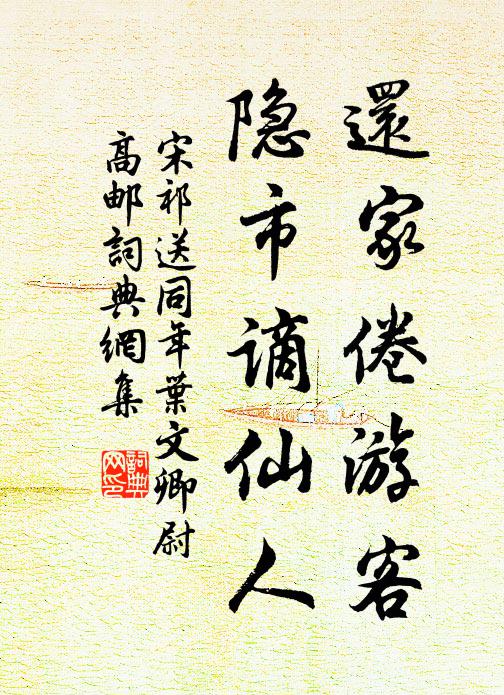 還家倦游客
隐市谪仙人
宋祁送同年葉文卿尉
高邮詞典網集
詞典
网印